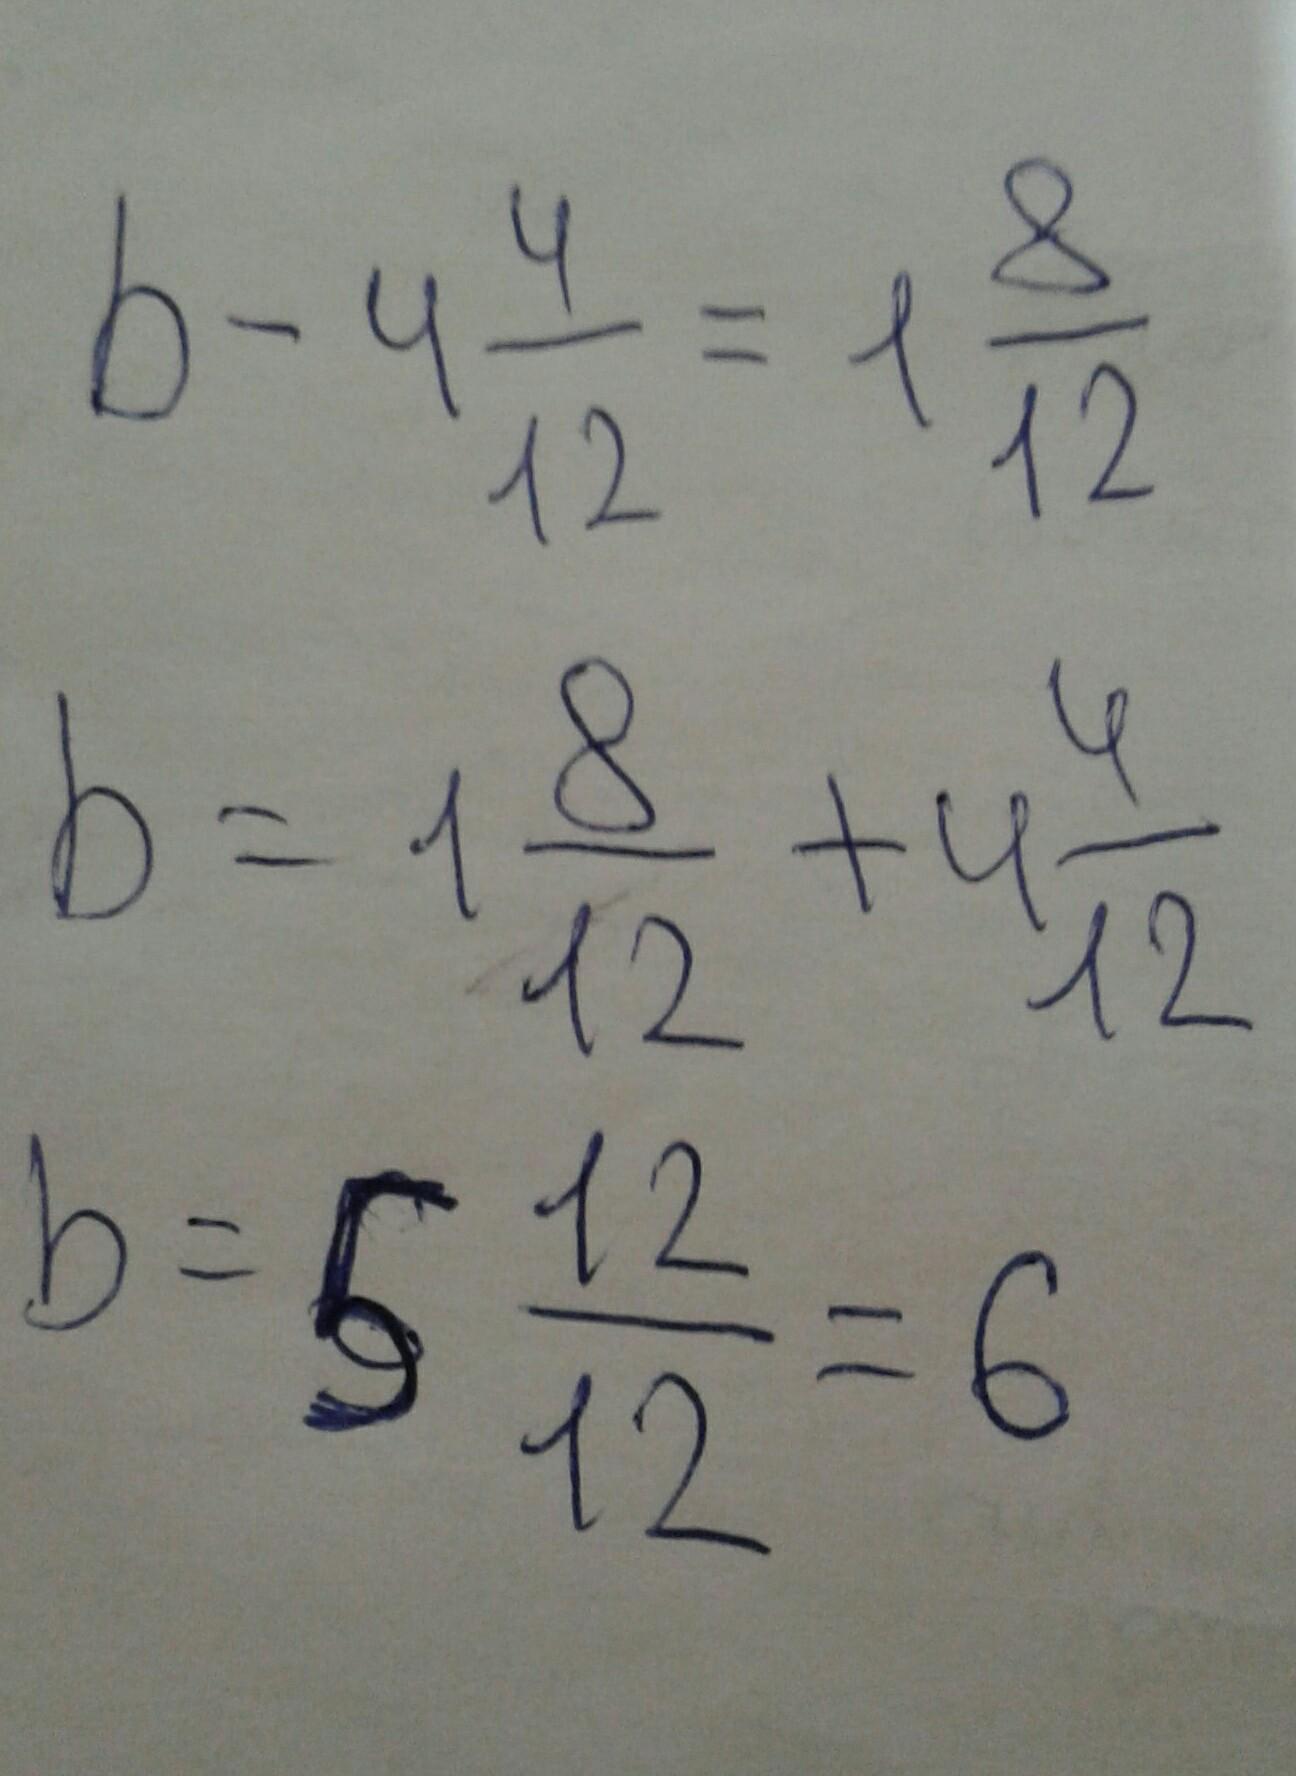 b - 4 4/12 = 1 8/12
b = 1 8/12 + 4 4/12
b = 5 12/12 = 6